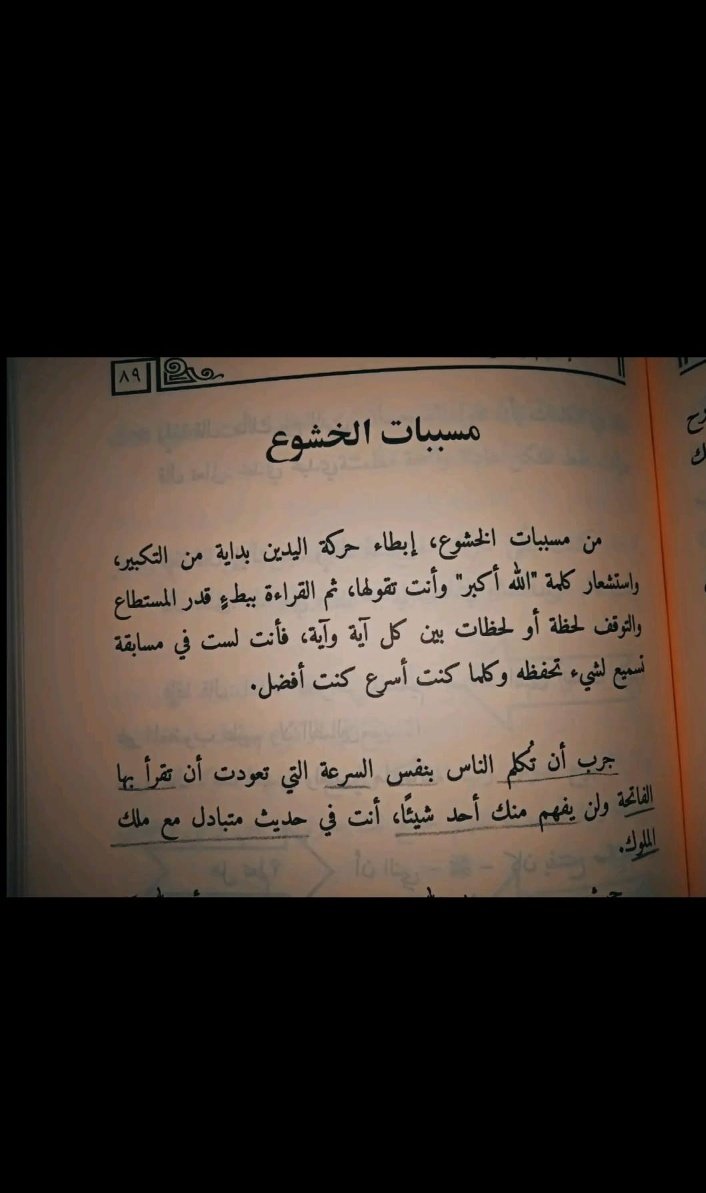 ٨٩
مسببات الخشوع
من مسببات الخشوع، إبطاء حركة اليدين بداية من التكبير،
واستشعار كلمة "الله أكبر" وأنت تقولها، ثم القراءة ببطءٍ قدر المستطاع
والتوقف لحظة أو لحظات بين كل آية وآية، فأنت لست في مسابقة
تسميع لشيء تحفظه وكلما كنت أسرع كنت أفضل.
جرب أن تُكلم الناس بنفس السرعة التي تعودت أن تقرأ بها
الفاتحة ولن يفهم منك أحد شيئًا، أنت في حديث متبادل مع ملك
الملوك.